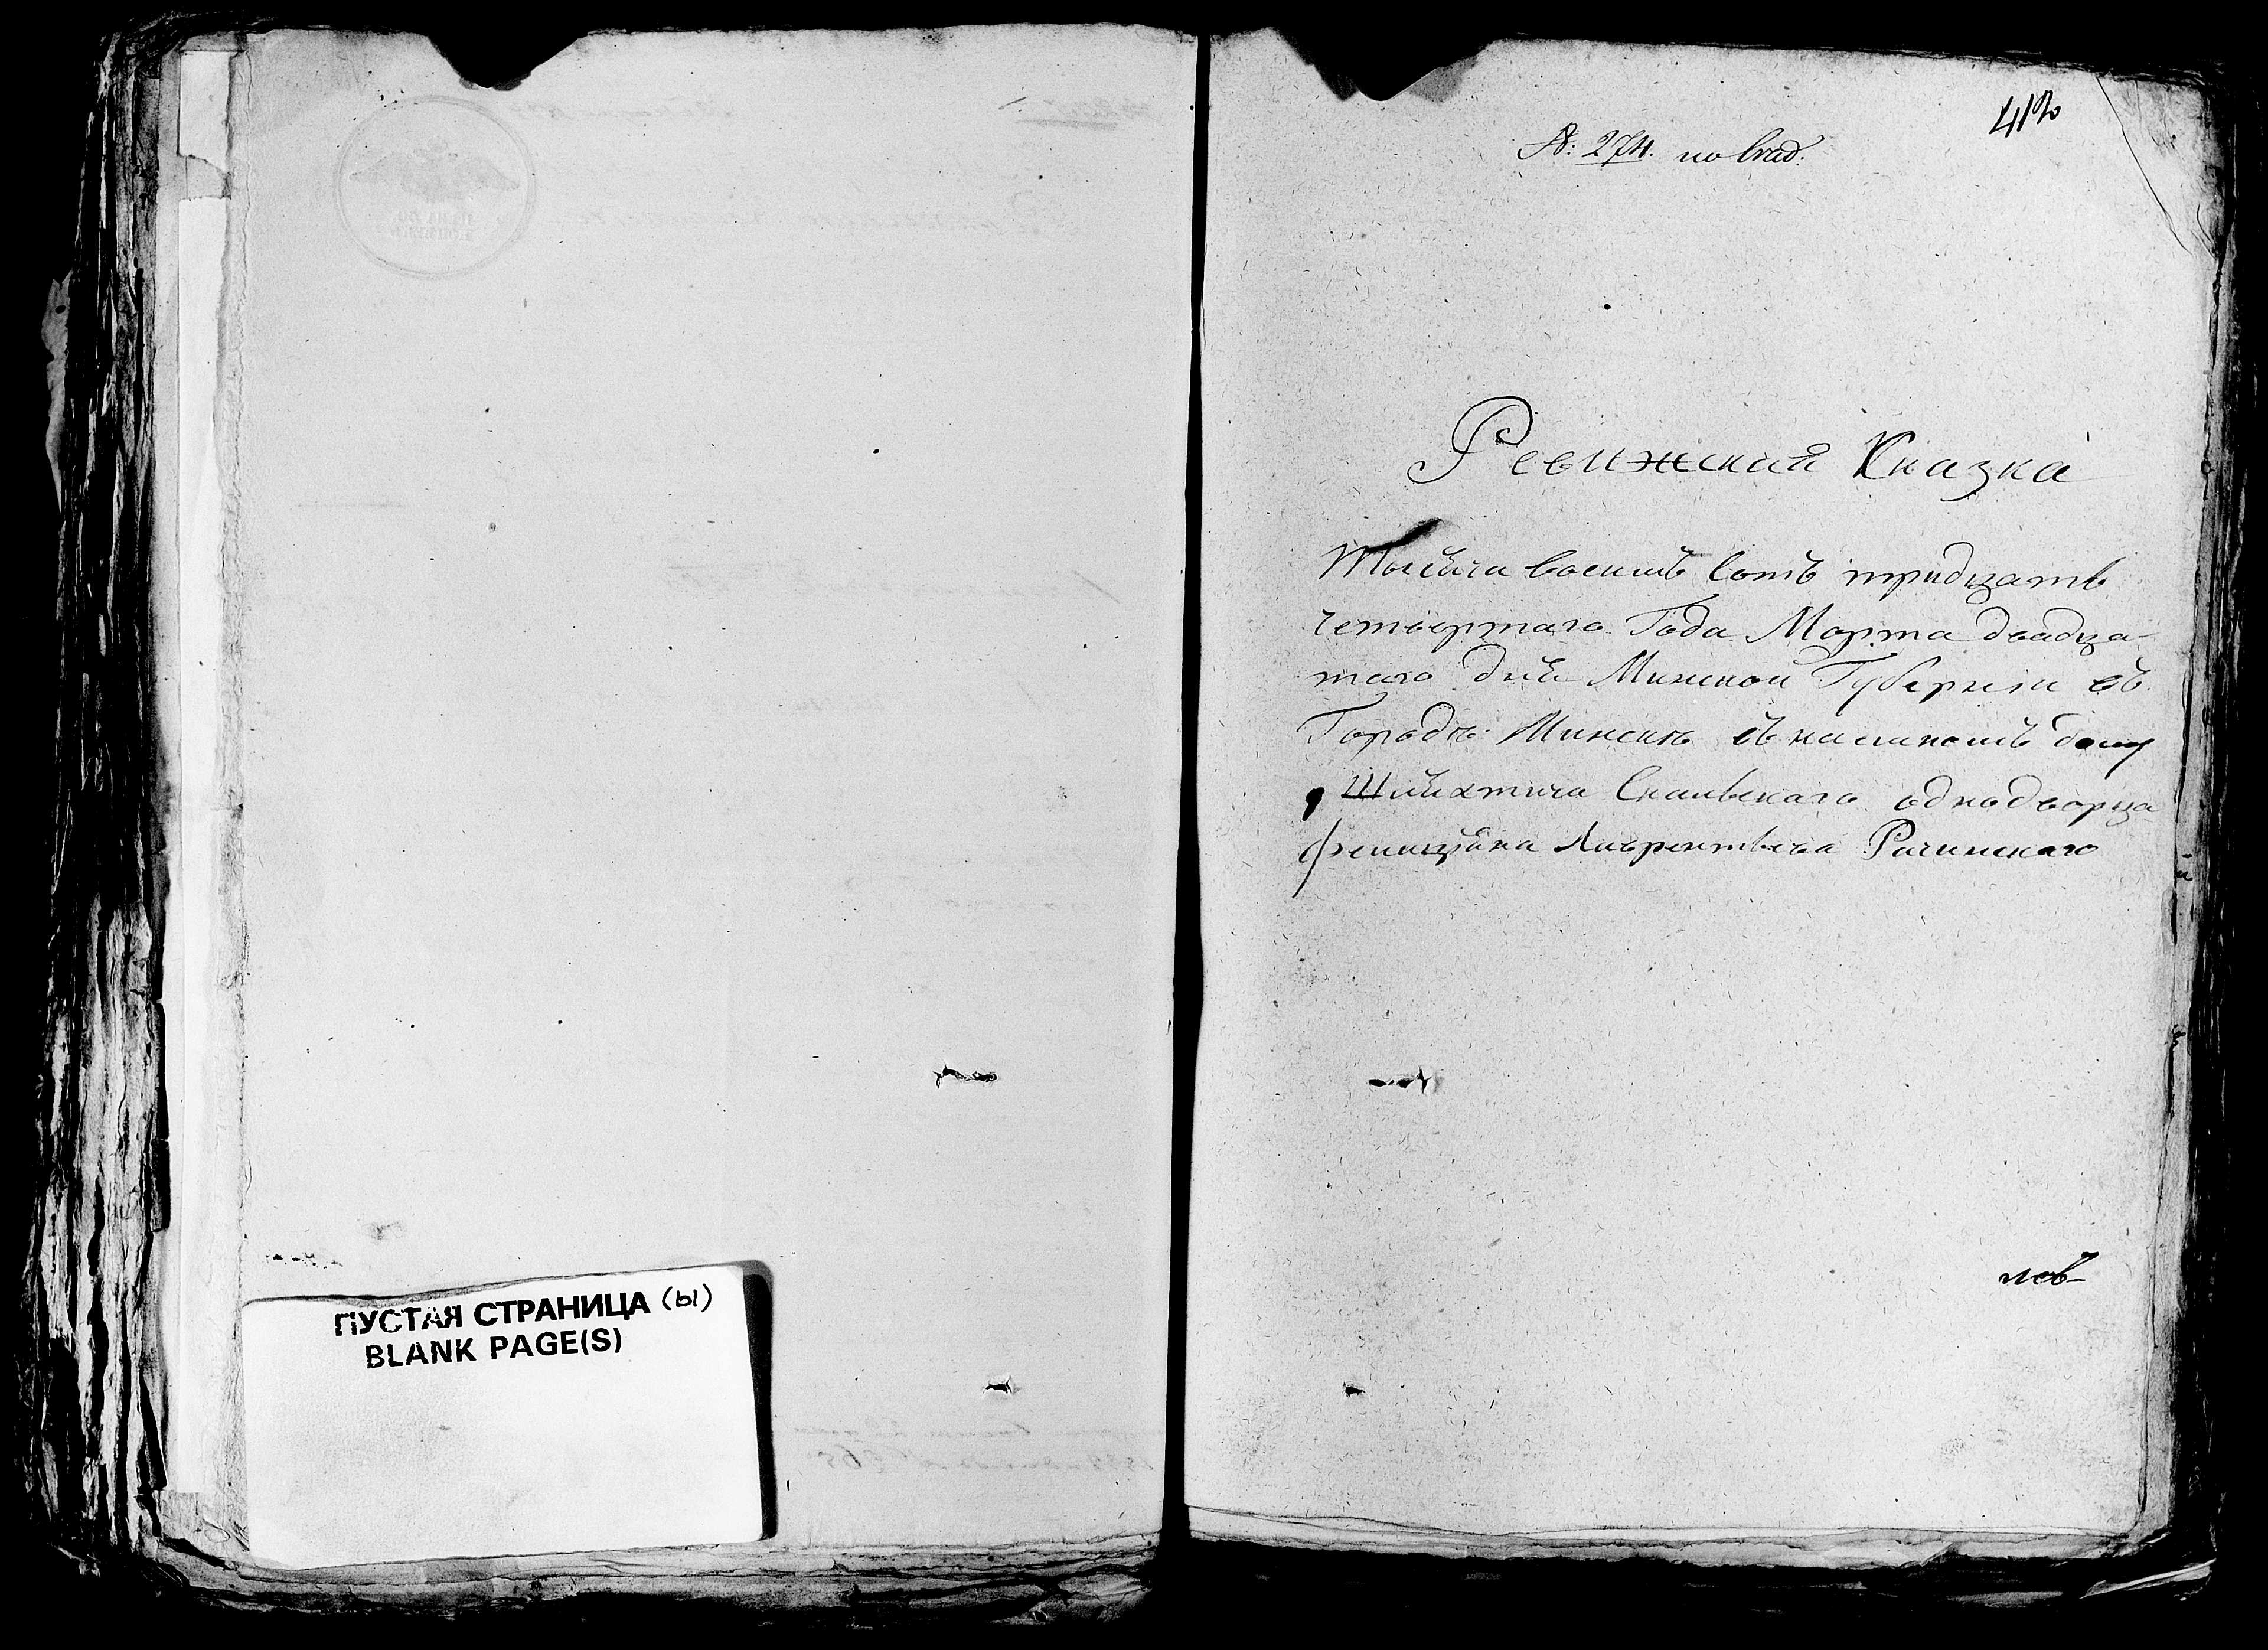 ПУСТАЯ СТРАНИЦА (ы)
BLANK PAGE(S)
412
№: 274. по
Ревижская Сказка
Тысяча восемь сотъ тридцать
четвертаго Года Марта двадца-
таго дня Минской Губерніи въ
Городѣ Минскѣ въ наемномъ дому
Шляхтича однодворца
Фелиціяна Лаврентьева Рачинскаго